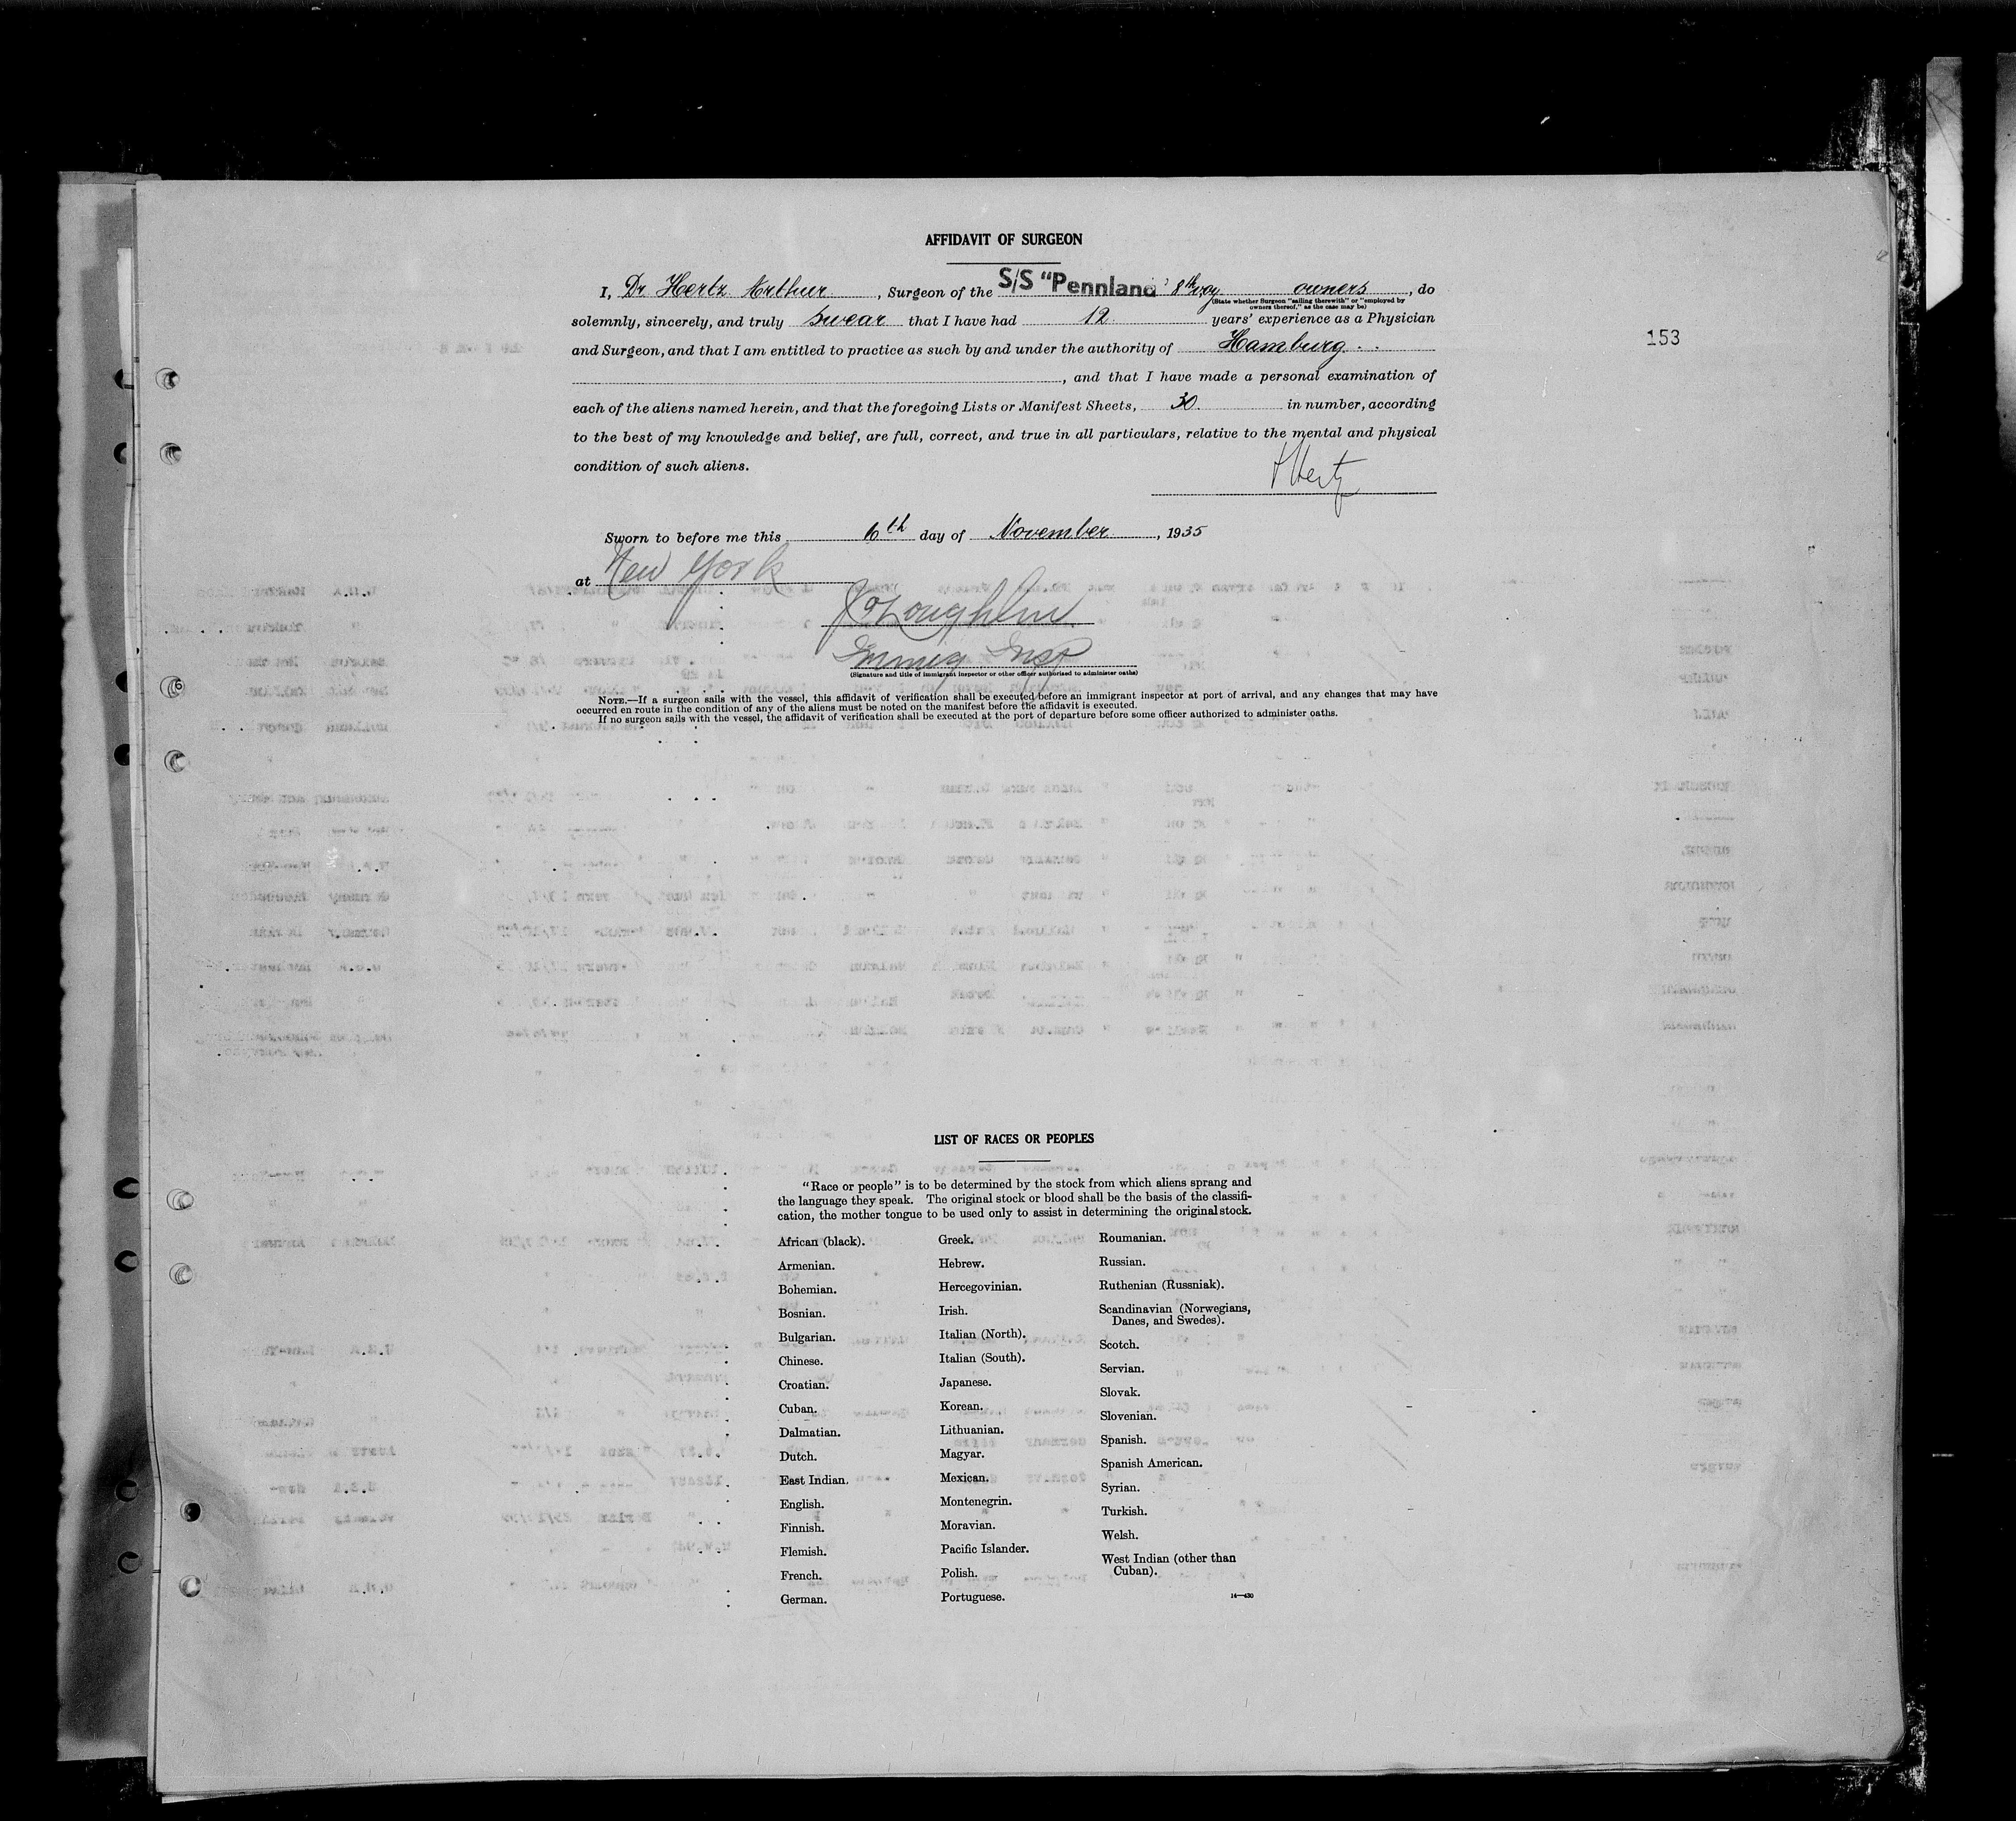 AFFIDAVIT OF SURGEON
I, Dr. Hertz Arthur, Surgeon of the S/S "Pennland" 8th voy. owners, do
(State whether Surgeon "sailing therewith" or "employed by
owners thereof," as the case may be)
solemnly, sincerely, and truly swear that I have had 12 years' experience as a Physician
153
and Surgeon, and that I am entitled to practice as such by and under the authority of Hamburg
, and that I have made a personal examination of
each of the aliens named herein, and that the foregoing Lists or Manifest Sheets, 30 in number, according
to the best of my knowledge and belief, are full, correct, and true in all particulars, relative to the mental and physical
condition of such aliens.
Hertz
Sworn to before me this 6th day of November, 1935
at New York
J O'Loughlin
Immig Insp
(Signature and title of immigrant inspector or other officer authorized to administer oaths)
NOTE.—If a surgeon sails with the vessel, this affidavit of verification shall be executed before an immigrant inspector at port of arrival, and any changes that may have
occurred en route in the condition of any of the aliens must be noted on the manifest before the affidavit is executed.
If no surgeon sails with the vessel, the affidavit of verification shall be executed at the port of departure before some officer authorized to administer oaths.
LIST OF RACES OR PEOPLES
"Race or people" is to be determined by the stock from which aliens sprang and
the language they speak. The original stock or blood shall be the basis of the classifi-
cation, the mother tongue to be used only to assist in determining the original stock.
African (black).
Armenian.
Bohemian.
Bosnian.
Bulgarian.
Chinese.
Croatian.
Cuban.
Dalmatian.
Dutch.
East Indian.
English.
Finnish.
Flemish.
French.
German.
Greek.
Hebrew.
Hercegovinian.
Irish.
Italian (North).
Italian (South).
Japanese.
Korean.
Lithuanian.
Magyar.
Mexican.
Montenegrin.
Moravian.
Pacific Islander.
Polish.
Portuguese.
Roumanian.
Russian.
Ruthenian (Russniak).
Scandinavian (Norwegians,
Danes, and Swedes).
Scotch.
Servian.
Slovak.
Slovenian.
Spanish.
Spanish American.
Syrian.
Turkish.
Welsh.
West Indian (other than
Cuban).
14—430